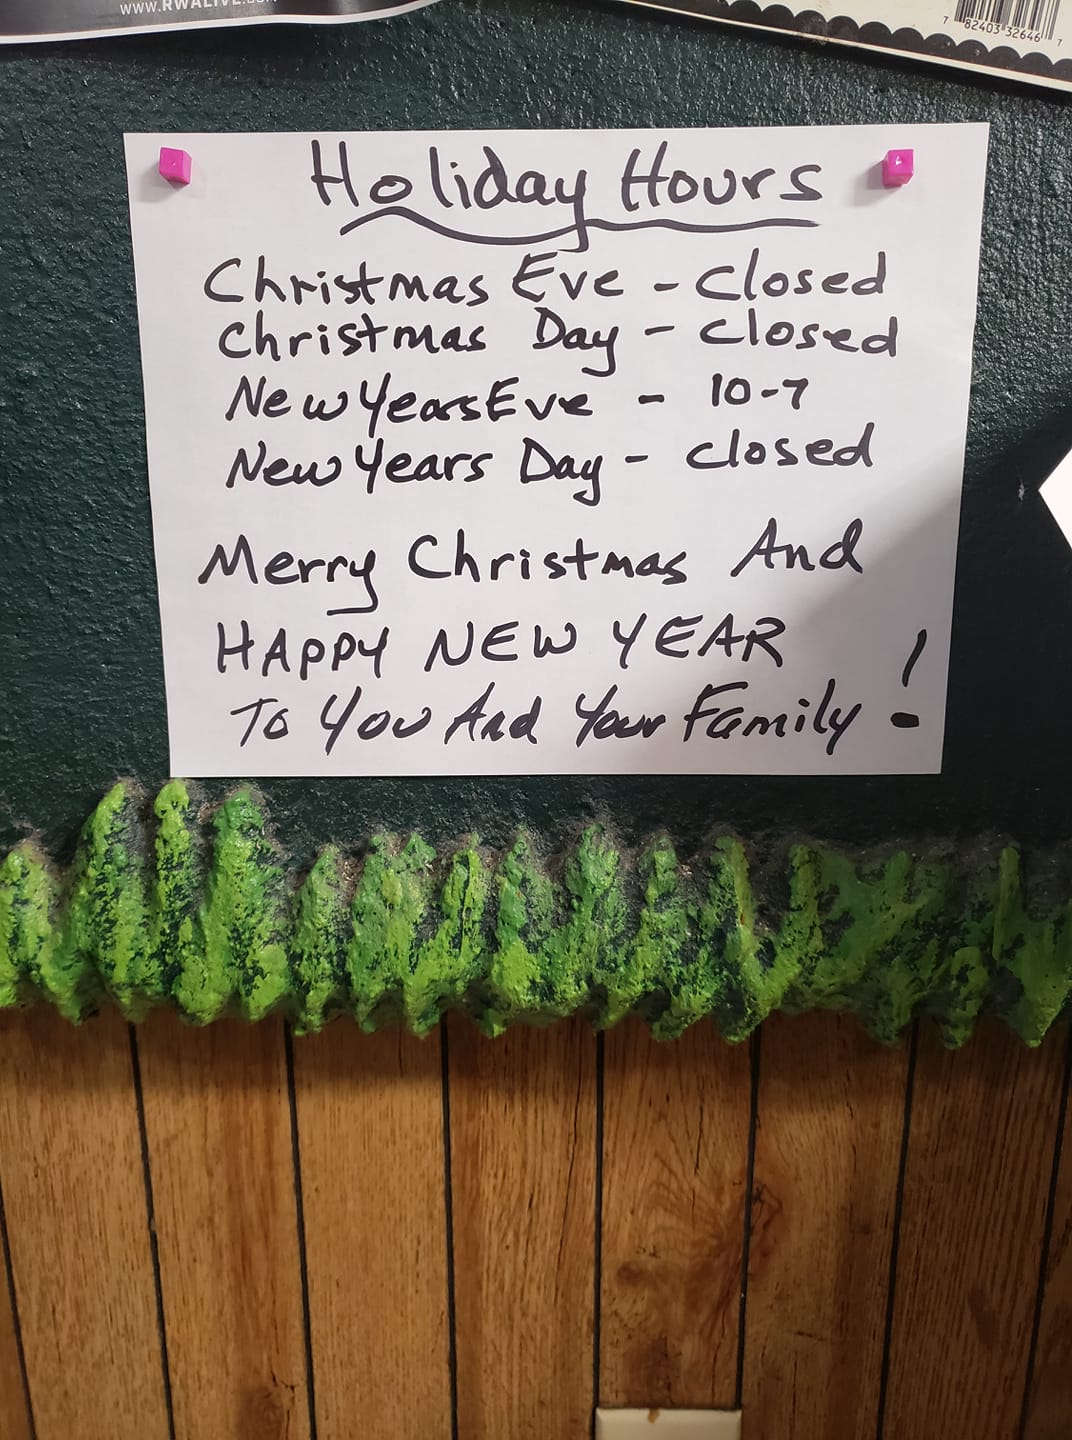 WWW.RWALIVE.
7 82403 32646 7
Holiday Hours
Christmas Eve - Closed
Christmas Day - Closed
New Years Eve - 10-7
New Years Day - Closed
Merry Christmas And
HAPPY NEW YEAR
To You And Your Family!